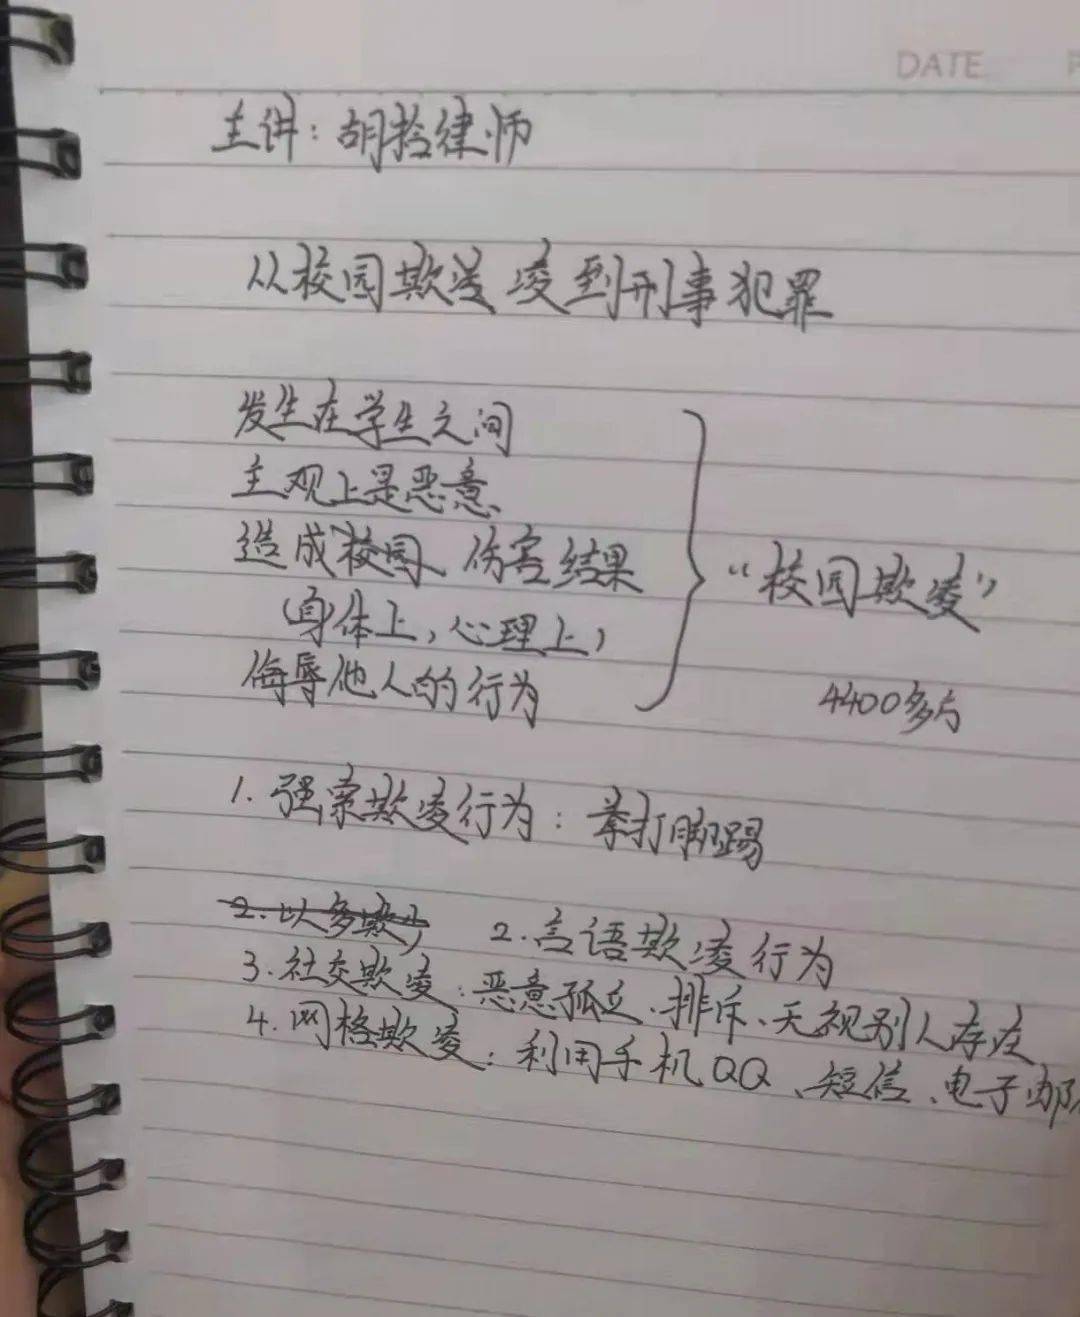 DATE
主讲：胡拾律师
从校园欺凌 凌到刑事犯罪
发生在学生之间
主观上是恶意
造成校园、伤害结果
（身体上，心理上）
侮辱他人的行为
“校园欺凌”
4400多
1. 强索欺凌行为：拳打脚踢
2. 以多欺少 2. 言语欺凌行为
3. 社交欺凌：恶意孤立、排斥、无视别人存在
4. 网格欺凌：利用手机QQ、短信、电子邮